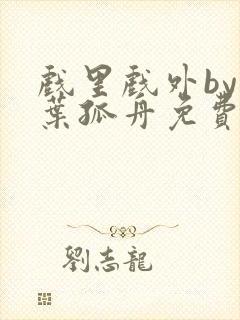 戲里戲外by
葉孤舟免費
劉志龍